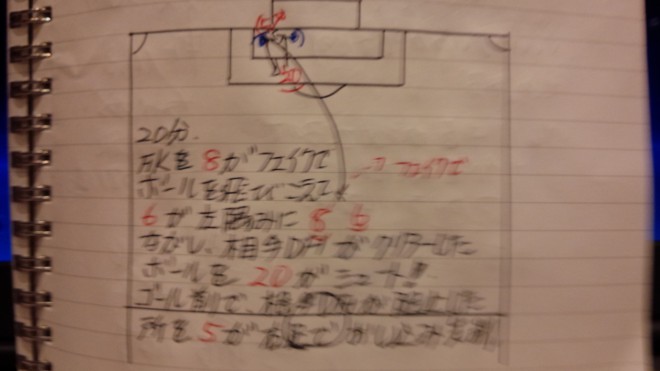 20
20分.
FKを8がフェイクで
フェイクで
ボールを飛びこえて
6が左隅みに 8 6
ながし、相手DFがクリアーした
ボールを20がシュート!!
ゴール前で、相手DFが
所を5が右足で